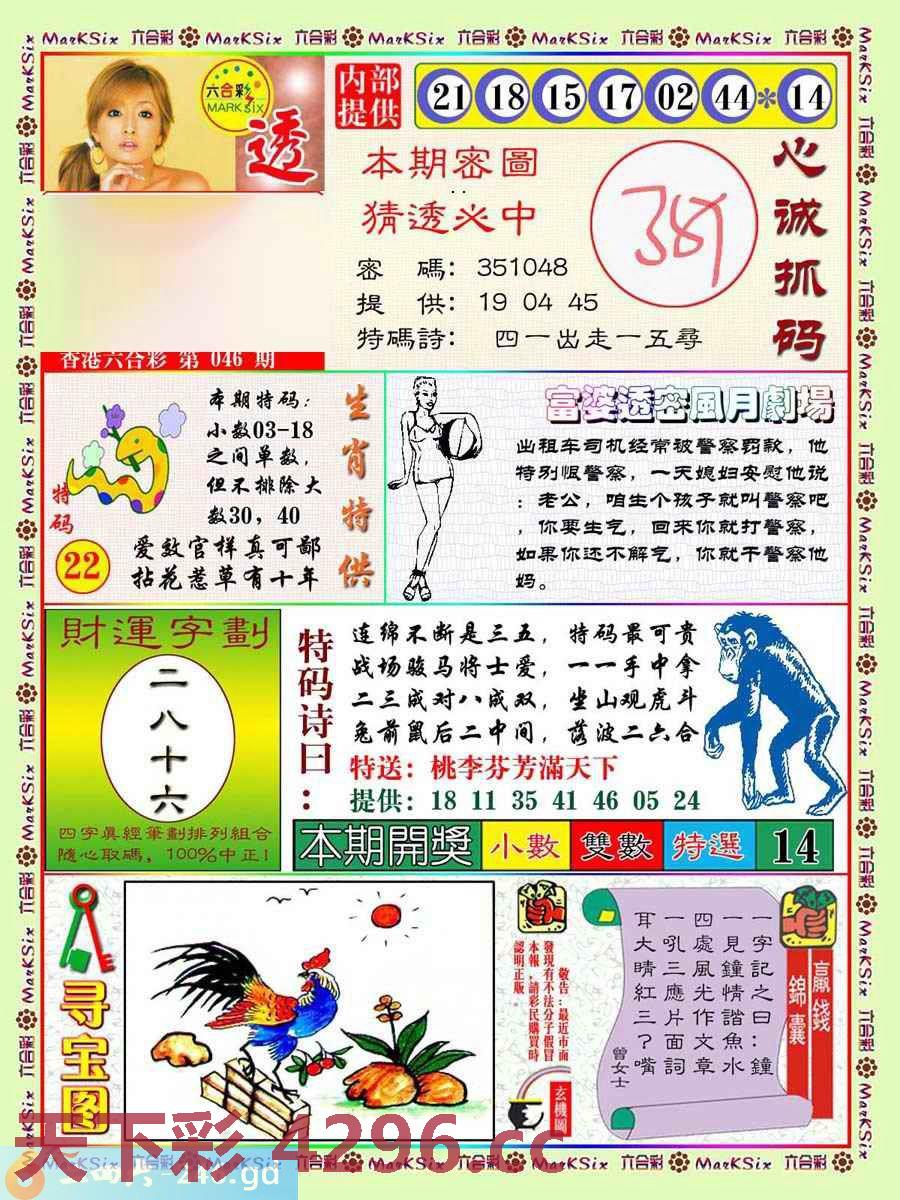 MarKSix 六合彩 MarKSix 六合彩 MarKSix 六合彩 MarKSix 六合彩 MarKSix 六合彩
六合彩
MARK SIX
透
内部
提供
21 18 15 17 02 44 * 14
本期密圖
猜透必中
密 碼: 351048
提 供: 19 04 45
特碼詩: 四一出走一五尋
心诚抓码
香港六合彩 第 046 期
特码
22
本期特码:
小数03-18
之间单数,
但不排除大
数30, 40
爱敛官样真可鄙
拈花惹草有十年
生肖特供
富婆透密風月劇場
出租车司机经常被警察罚款, 他
特别恨警察, 一天媳妇安慰他说
: 老公, 咱生个孩子就叫警察吧
, 你要生气, 回来你就打警察,
如果你还不解气, 你就干警察他
妈。
財運字劃
二八十六
四字真經筆劃排列組合
隨心取碼, 100%中正!
特码诗曰:
连绵不断是三五, 特码最可贵
战场骏马将士爱, 一一手中拿
二三成对八成双, 坐山观虎斗
兔前鼠后二中间, 落波二六合
特送: 桃李芬芳滿天下
提供: 18 11 35 41 46 05 24
本期開獎 小數 雙數 特選 14
寻宝图
敬告:最近市面
發現有不法分子假冒
本報,請彩民購買時
認明正版。
玄機圖
一字記之曰:鐘
一見鐘情諧魚水
四處風光作文章
一吼三應片面詞
耳大晴紅三?嘴
曾女士
贏錢
錦囊
天下彩 4296.cc
MarKSix 六合彩 MarKSix 六合彩 MarKSix 六合彩 MarKSix 六合彩